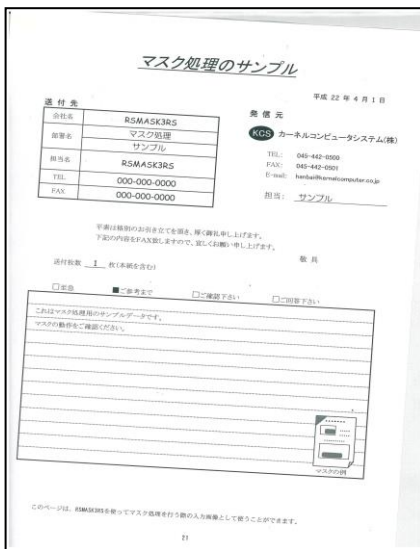 マスク処理のサンプル
平成 22 年 4 月 1 日
送付先
会社名 RSMASK3RS
部署名 マスク処理
サンプル
担当名 RSMASK3RS
TEL 000-000-0000
FAX 000-000-0000
発信元
KCS カーネルコンピュータシステム(株)
TEL: 045-442-0500
FAX: 045-442-0501
E-mail: hanbai@kernelcomputer.co.jp
担当: サンプル
平素は格別のお引き立てを頂き、厚く御礼申し上げます。
下記の内容をFAX致しますので、宜しくお願い申し上げます。
敬具
送付枚数 1 枚(本紙を含む)
□至急 ■ご参考まで □ご確認下さい □ご回答下さい
これはマスク処理用のサンプルデータです。
マスクの動作をご確認ください。
マスクの例
このページは、RSMASK3RSを使ってマスク処理を行う際の入力画像として使うことができます。
11